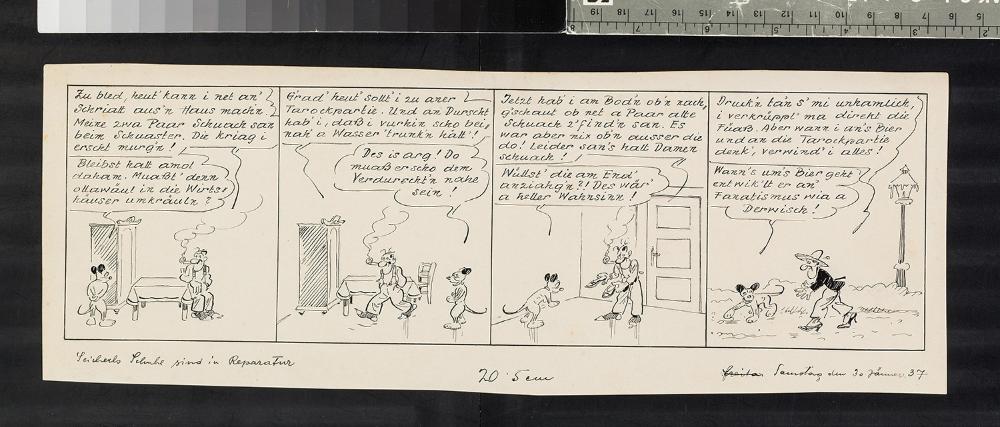 Zu bled, heut' kann i net an'
Schriatt aus'n Haus mach'n.
Meine zwa Paar Schuach san
beim Schuaster. Die kriag i
erscht murg'n!
Bleibst halt amol
daham. Muaßt' denn
ollawäul in die Wirts-
häuser umkräuln?
G'rad' heut' sollt' i zu aner
Tarockpartie. Und an Durscht
hab' i, daß i vurhin scho bei-
nah' a Wasser 'trunk'n hätt'!
Des is arg! Do
muaß er scho dem
Verdurscht'n nahe
sein!
Jetzt hab' i am Bod'n ob'n nach-
g'schaut ob net a Paar alte
Schuach z' find'n san. Es
war aber nix ob'n ausser die
do! Leider san's halt Damen
schuach!
Willst' die am End'
anziahg'n?! Des wär'
a heller Wahnsinn!
Druck'n ta'n s' mi unhamlich,
i verkrüppl' ma direkt die
Füaß. Aber wann i an's Bier
und an die Tarockpartie
denk', verwind' i alles!
Wann's um's Bier geht
entwik'lt er an'
Fanatismus wia a
Derwisch!
Seicherls Schuhe sind in Reparatur
20·5 cm
Samstag den 30 Jänner 37